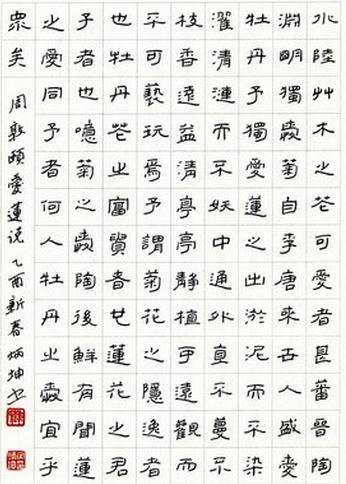 水陸艸木之花可愛者甚蕃晉陶
淵明獨愛菊自李唐來世人盛愛
牡丹予獨愛蓮之出淤泥而不染
濯清漣而不妖中通外直不蔓不
枝香遠益清亭亭靜植可遠觀而
不可褻玩焉予謂菊花之隱逸者
也牡丹花之富貴者也蓮花之君
子者也噫菊之愛陶後鮮有聞蓮
之愛同予者何人牡丹之愛宜乎
眾矣 周敦頤愛蓮说 乙酉新春炳坤书